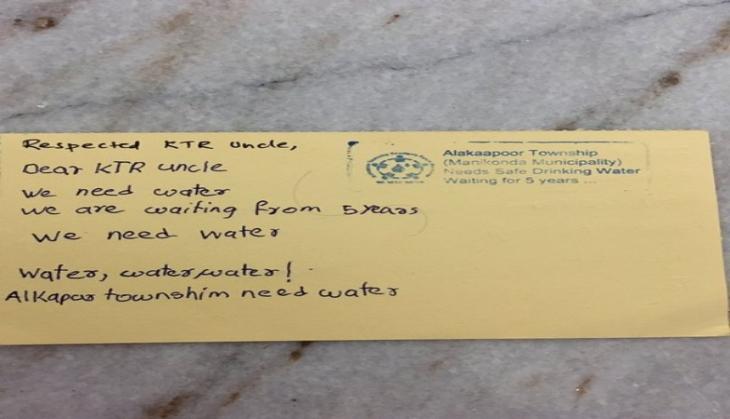 Respected KTR uncle,
Dear KTR uncle
we need water
we are waiting from 5years
we need water
Water, water, water!
Alkapar townshim need water
Alakaapoor Township
(Manikonda Municipality)
Needs Safe Drinking Water
Waiting for 5 years ...